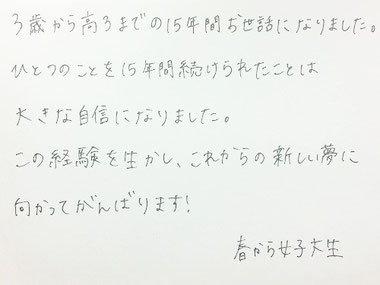 3歳から高3までの15年間お世話になりました。
ひとつのことを15年間続けられたことは
大きな自信になりました。
この経験を生かし、これからの新しい夢に
向かってがんばります!
春から女子大生